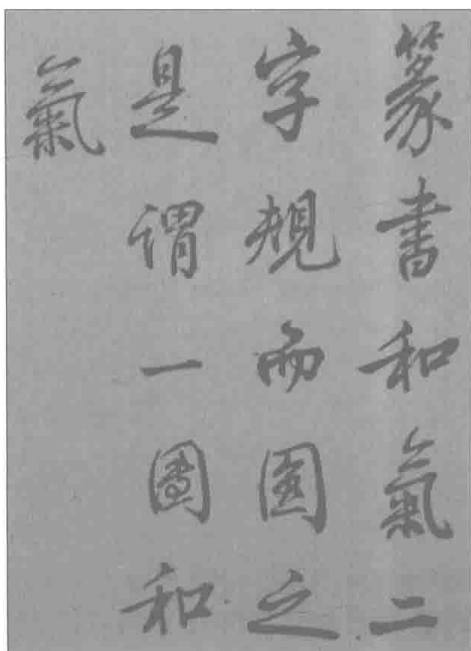 篆書和氣二
字規而圓之
是謂一團和
氣